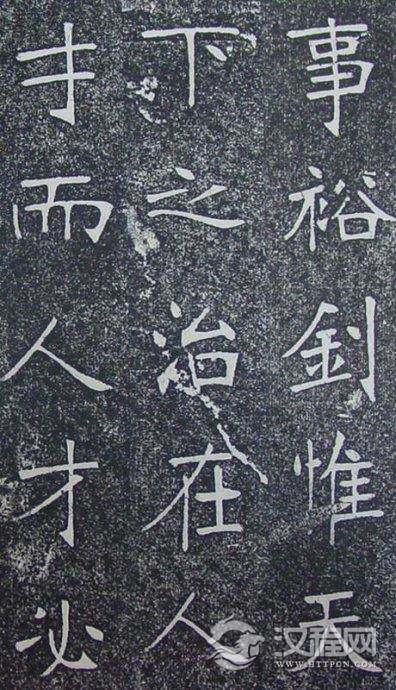 事裕釗惟天
下之治在人
才而人才必
汉程网
WWW.HTTPCN.COM